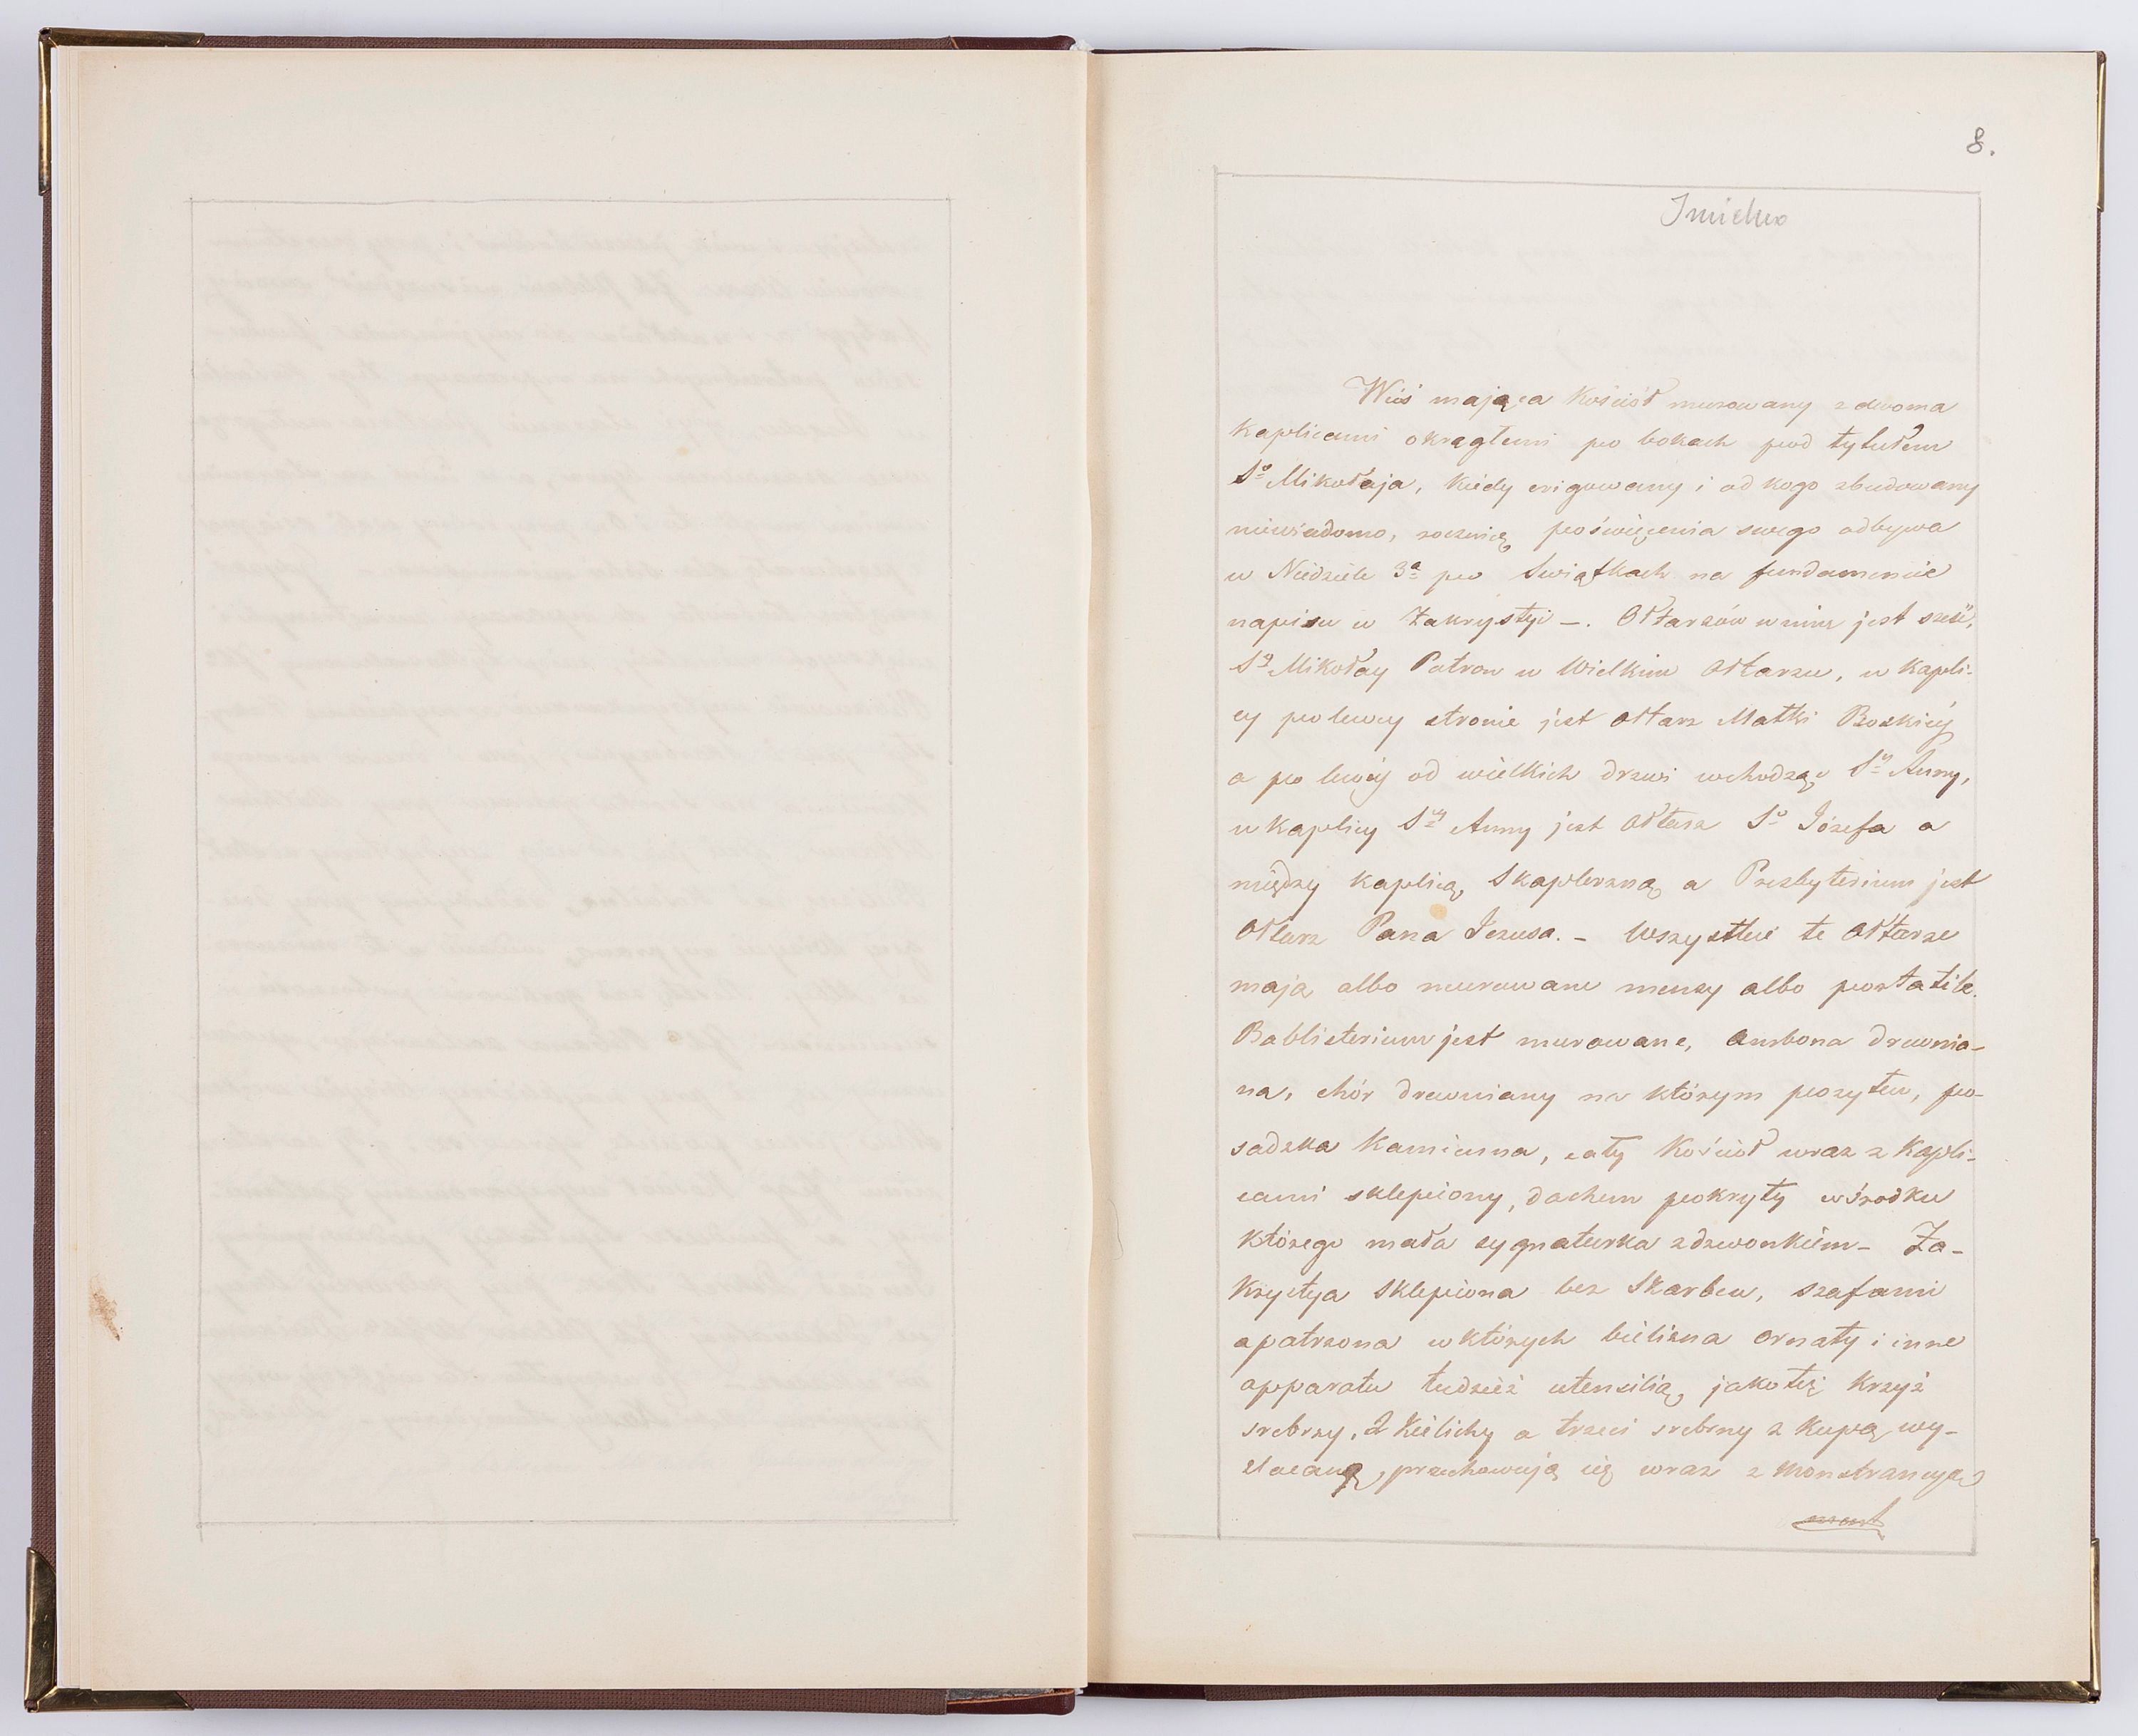 8.
Imielno
Wieś mająca Kościół murowany z dwoma
kaplicami okrągłemi po bokach pod tytułem
Sº Mikołaja, kiedy erigowany i od kogo zbudowany
niewiadomo, rocznicę poświęcenia swego odbywa
w Niedziele 3ª po Swiątkach na fundamencie
napisu w Zakrystyi –. Ołtarzów w nim jest sześć,
Sy Mikołay Patron w Wielkim Ołtarzu, w kapli-
cy po lewey stronie jest ołtarz Matki Boskiéy
a po lewéy od wielkich drzwi wchodząc Sey Anny,
w kaplicy Sey Anny jest Ołtarz Sº Józefa a
między kaplicą Skaplerzną a Prezbyterium jest
Ołtarz Pana Jezusa. – Wszystkie te Ołtarze
mają albo murowane menzy albo portatile.
Bablisterium jest murowane, ambona drewnia-
na, chór drewniany na którym pozytew, po-
sadzka kamienna, cały Kościół wraz z kapli-
cami sklepiony, dachem pokryty w środku
którego mała sygnaturka z dzwonkiem – Za-
krystya sklepiona bez Skarbcu, szafami
opatrzona w których bielizna ornaty i inne
apparata tudzież utensilią, jakoteż krzyż
srebrzy, 2 kielichy a trzeci srebrny z kupą wy-
złacaną, przechowują się wraz z monstrancyą